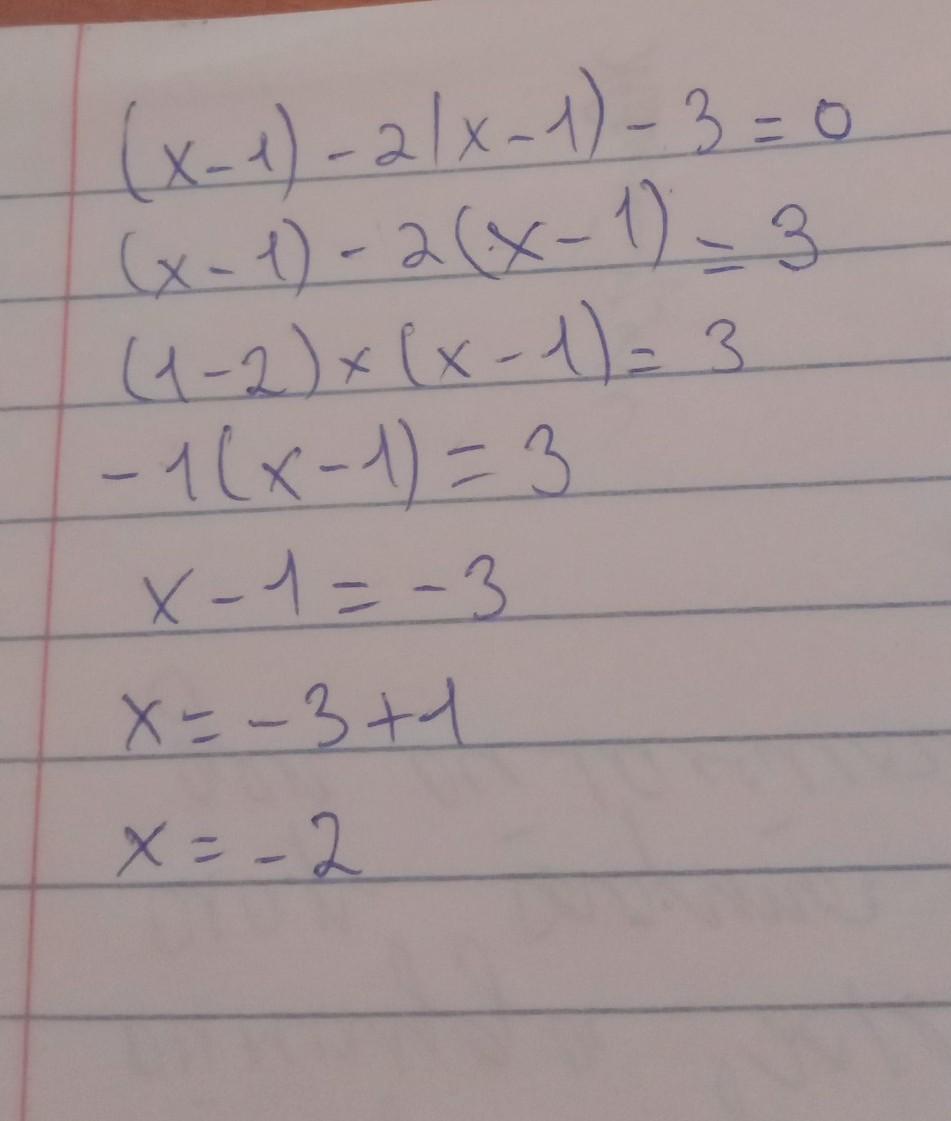 (x-1)-2(x-1)-3=0
(x-1)-2(x-1)=3
(1-2)×(x-1)=3
-1(x-1)=3
x-1=-3
x=-3+1
x=-2